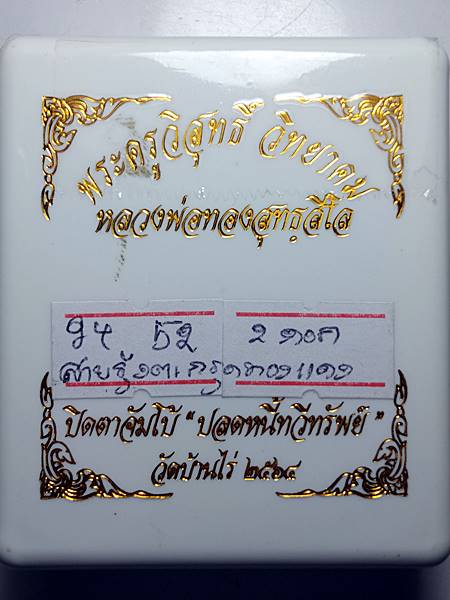 พระครูวิสุทธิ์ วิทยาคม
หลวงพ่อทองสุทธฺสีโล
52 2 ดอก
สายรุ้ง ตะกรุดทองแดง
ปิดตาจัมโบ้ "ปลดหนี้ทวีทรัพย์"
วัดบ้านไร่ ๒๕๖๔